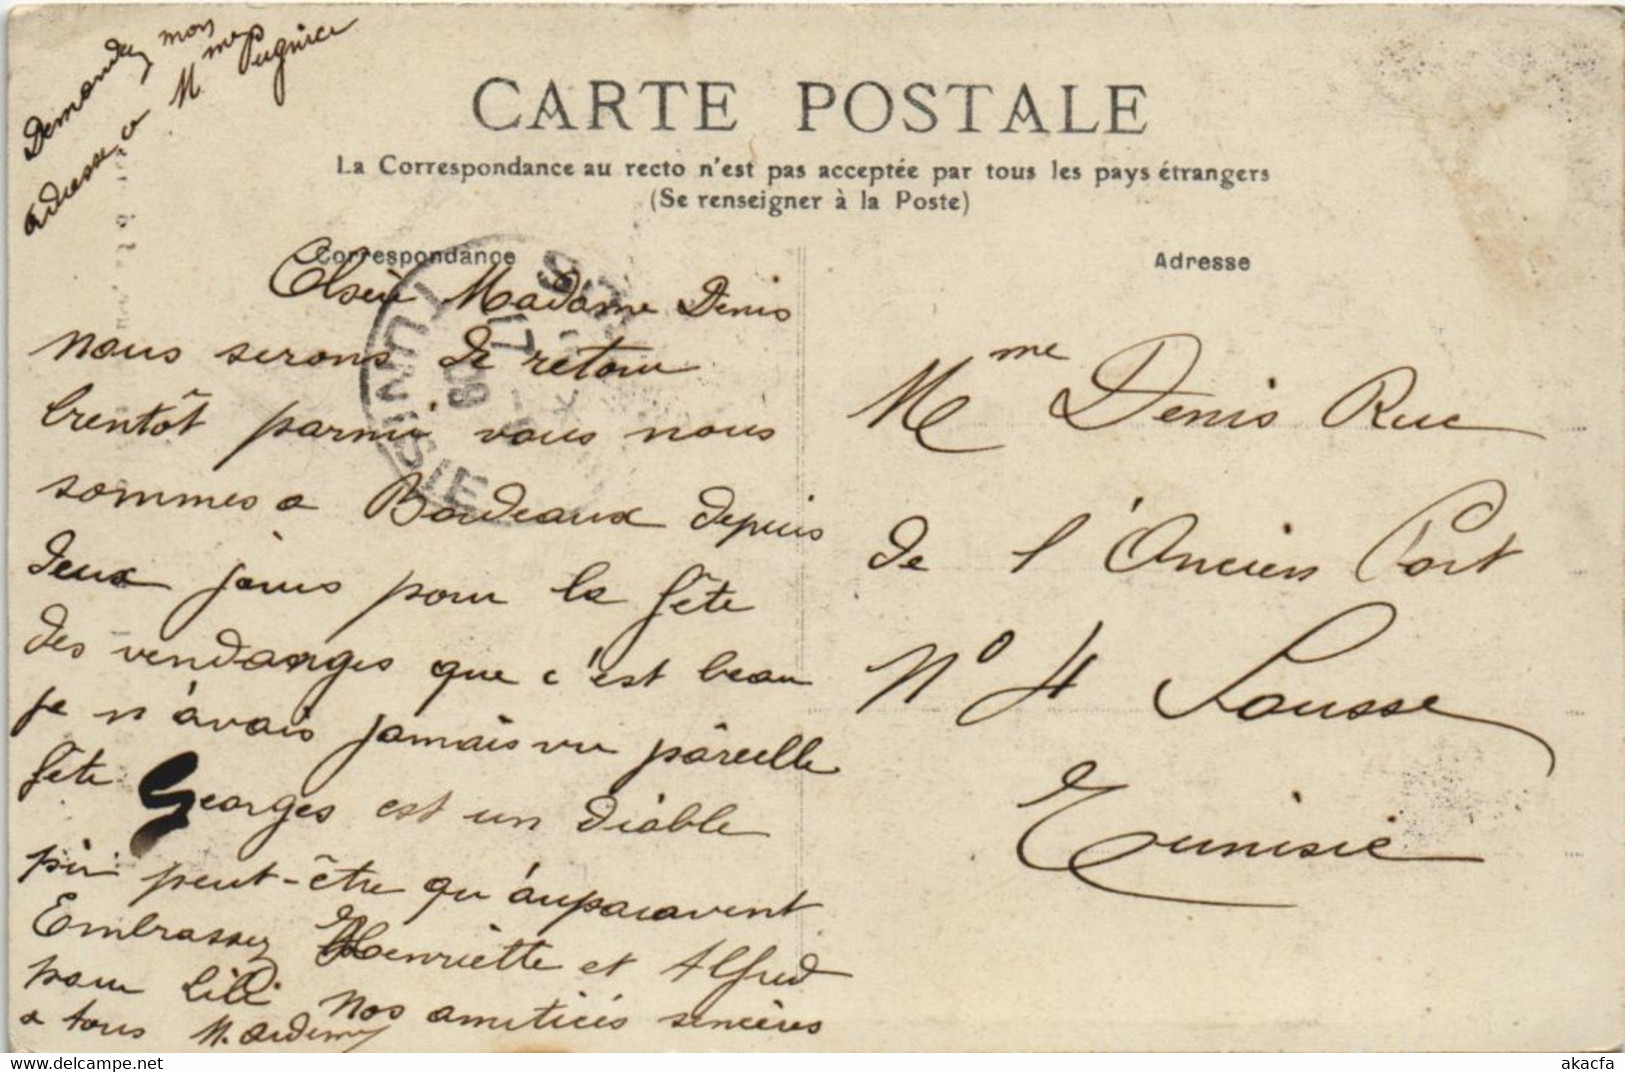 Demandez mon
adresse a Mme Pugnier
CARTE POSTALE
La Correspondance au recto n'est pas acceptée par tous les pays étrangers
(Se renseigner à la Poste)
Correspondance
Adresse
Chère Madame Denis
nous serons de retour
bientôt parmi vous nous
sommes a Bordeaux depuis
deux jours pour la fête
des vendanges que c'est beau
je n'avais jamais vu pareille
fête Georges est un diable
pir peut-être qu'auparavent
Embrassez Henriette et Alfred
pour Lili nos amitiés sincères
a tous
TUNISIE
Mme Denis Rue
de l'Ancien Port
No 4 Sousse
Tunisie
akacfa